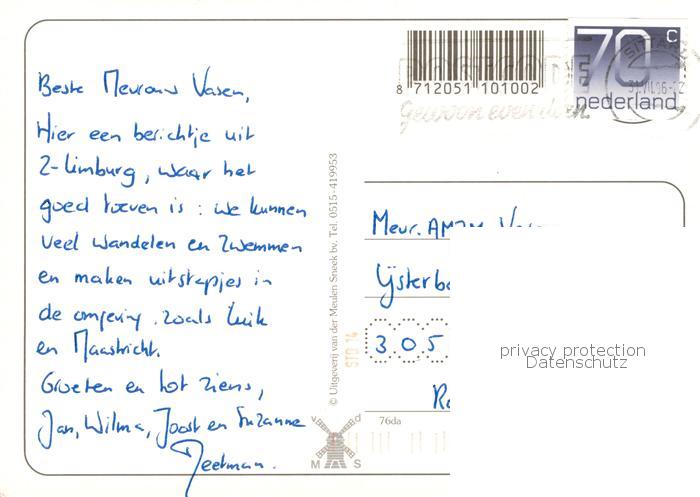 Beste Mevrouw Vasen,
Hier een berichtje uit
Z-Limburg, waar het
goed toeven is : we kunnen
veel wandelen en zwemmen
en maken uitstapjes in
de omgeving. zoals Luik
en Maastricht.
Groeten en tot ziens,
Jan, Wilma, Joost en Suzanne
8 712051 101002
POSTCODE
Gewoon even doen.
SITTARD
70 c
nederland
© Uitgeverij van der Meulen Sneek bv. Tel. 0515-419953
STD 14
Mevr.
3 0 5
76da
M S
privacy protection
Datenschutz